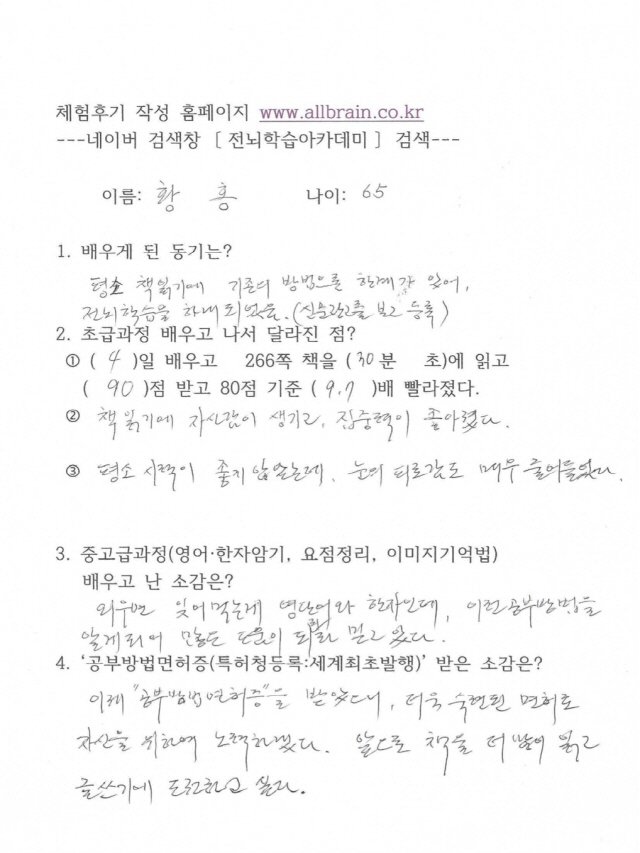 체험후기 작성 홈페이지 www.allbrain.co.kr
---네이버 검색창 [ 전뇌학습아카데미 ] 검색---
이름: 황 홍 나이: 65
1. 배우게 된 동기는?
평소 책읽기에 기존의 방법으론 한계감 있어,
전뇌학습을 하게 되었음. (신문광고를 보고 등록)
2. 초급과정 배우고 나서 달라진 점?
① ( 4 )일 배우고 266쪽 책을 ( 30분 초)에 읽고
( 90 )점 받고 80점 기준 ( 9.7 )배 빨라졌다.
② 책읽기에 자신감이 생기고, 집중력이 좋아졌다.
③ 평소 시력이 좋지 않았는데, 눈의 피로감도 매우 줄어들었다.
3. 중고급과정(영어·한자암기, 요점정리, 이미지기억법)
배우고 난 소감은?
외우면 잊어먹는게 영단어와 한자인데, 이런 공부방법을
알게되어 많은 도움이 되리라 믿고 있다.
4. ‘공부방법면허증(특허청등록:세계최초발행)’ 받은 소감은?
이제 "공부방법면허증"을 받았으니, 더욱 숙련된 면허로
자신을 위하여 노력하겠다. 앞으로 책을 더 많이 읽고
글쓰기에 도전하고 싶다.